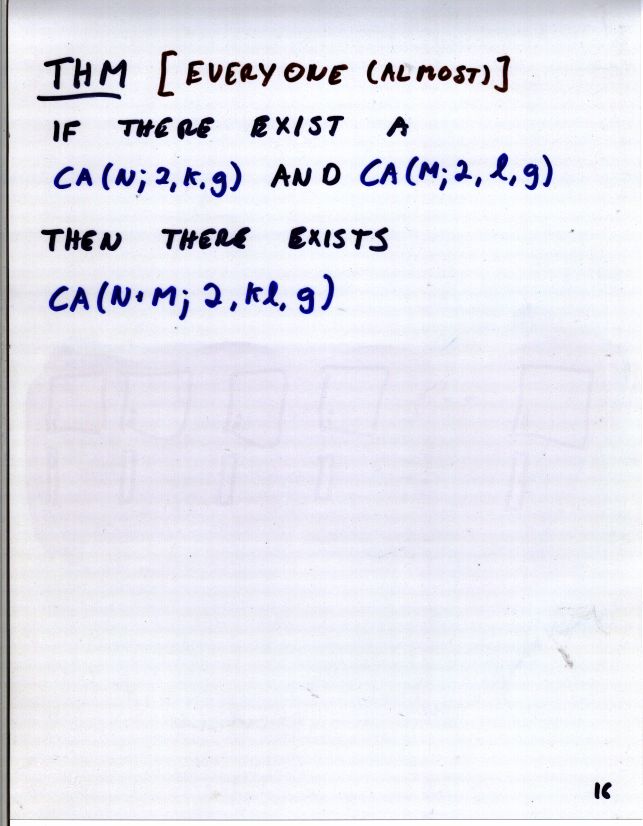 THM [EVERYONE (ALMOST)]
IF THERE EXIST A
CA(N; 2, k, g) AND CA(M; 2, l, g)
THEN THERE EXISTS
CA(N+M; 2, kl, g)
16